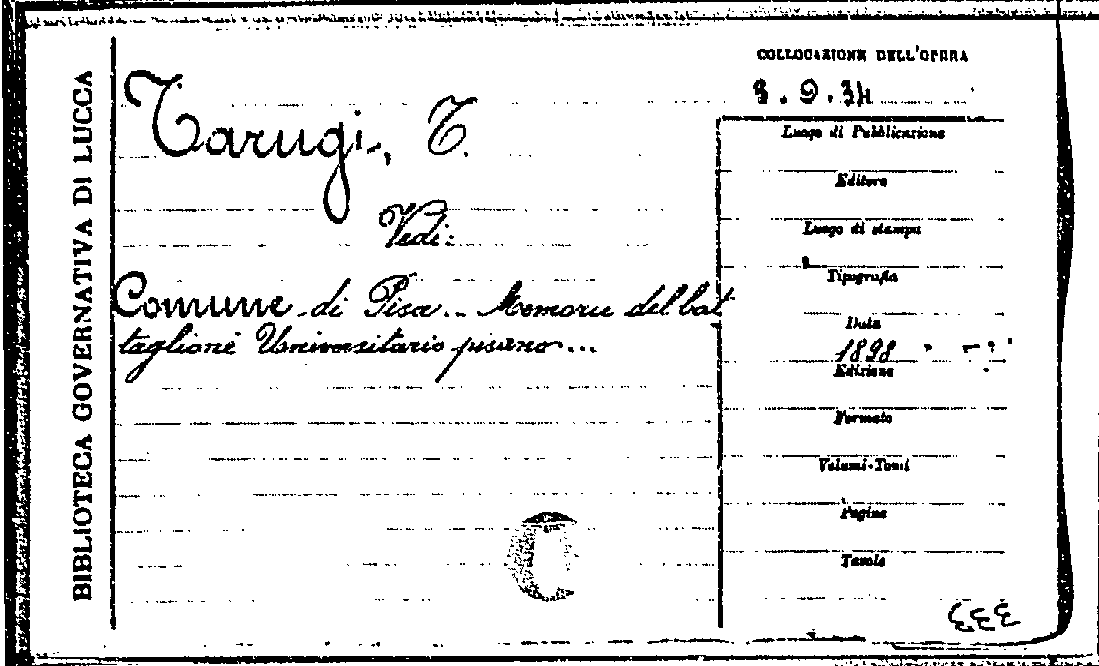 BIBLIOTECA GOVERNATIVA DI LUCCA
COLLOCAZIONE DELL'OPERA
Tarugi, T.
Vedi:
Comune di Pisa.. Memorie del bat
taglione Universitario pisano...
Luogo di Pubblicazione
Editore
Luogo di stampa
Tipografia
Data
1898
Edizione
Formato
Volumi-Tomi
Pagine
Tavole